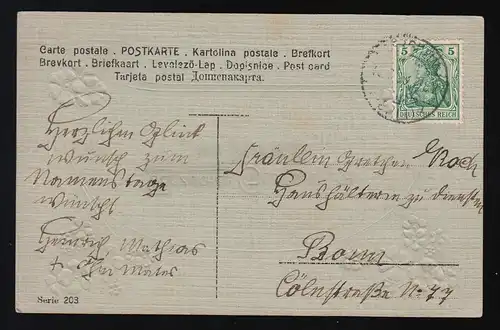 Carte postale . POSTKARTE . Kartolina postale . Brefkort
Brevkort . Briefkaart . Levelező-Lap . Dopisnice . Post card
Tarjeta postal Допненакарта.
5 5
DEUTSCHES REICH
Herzlichen Glück
wunsch zum
Namenstage
wünscht
Heinrich Mathias
+
Fräulein Gretchen Koch
Haushälterin zu diensten
Bonn
Cölnstraße No 77
Serie 203